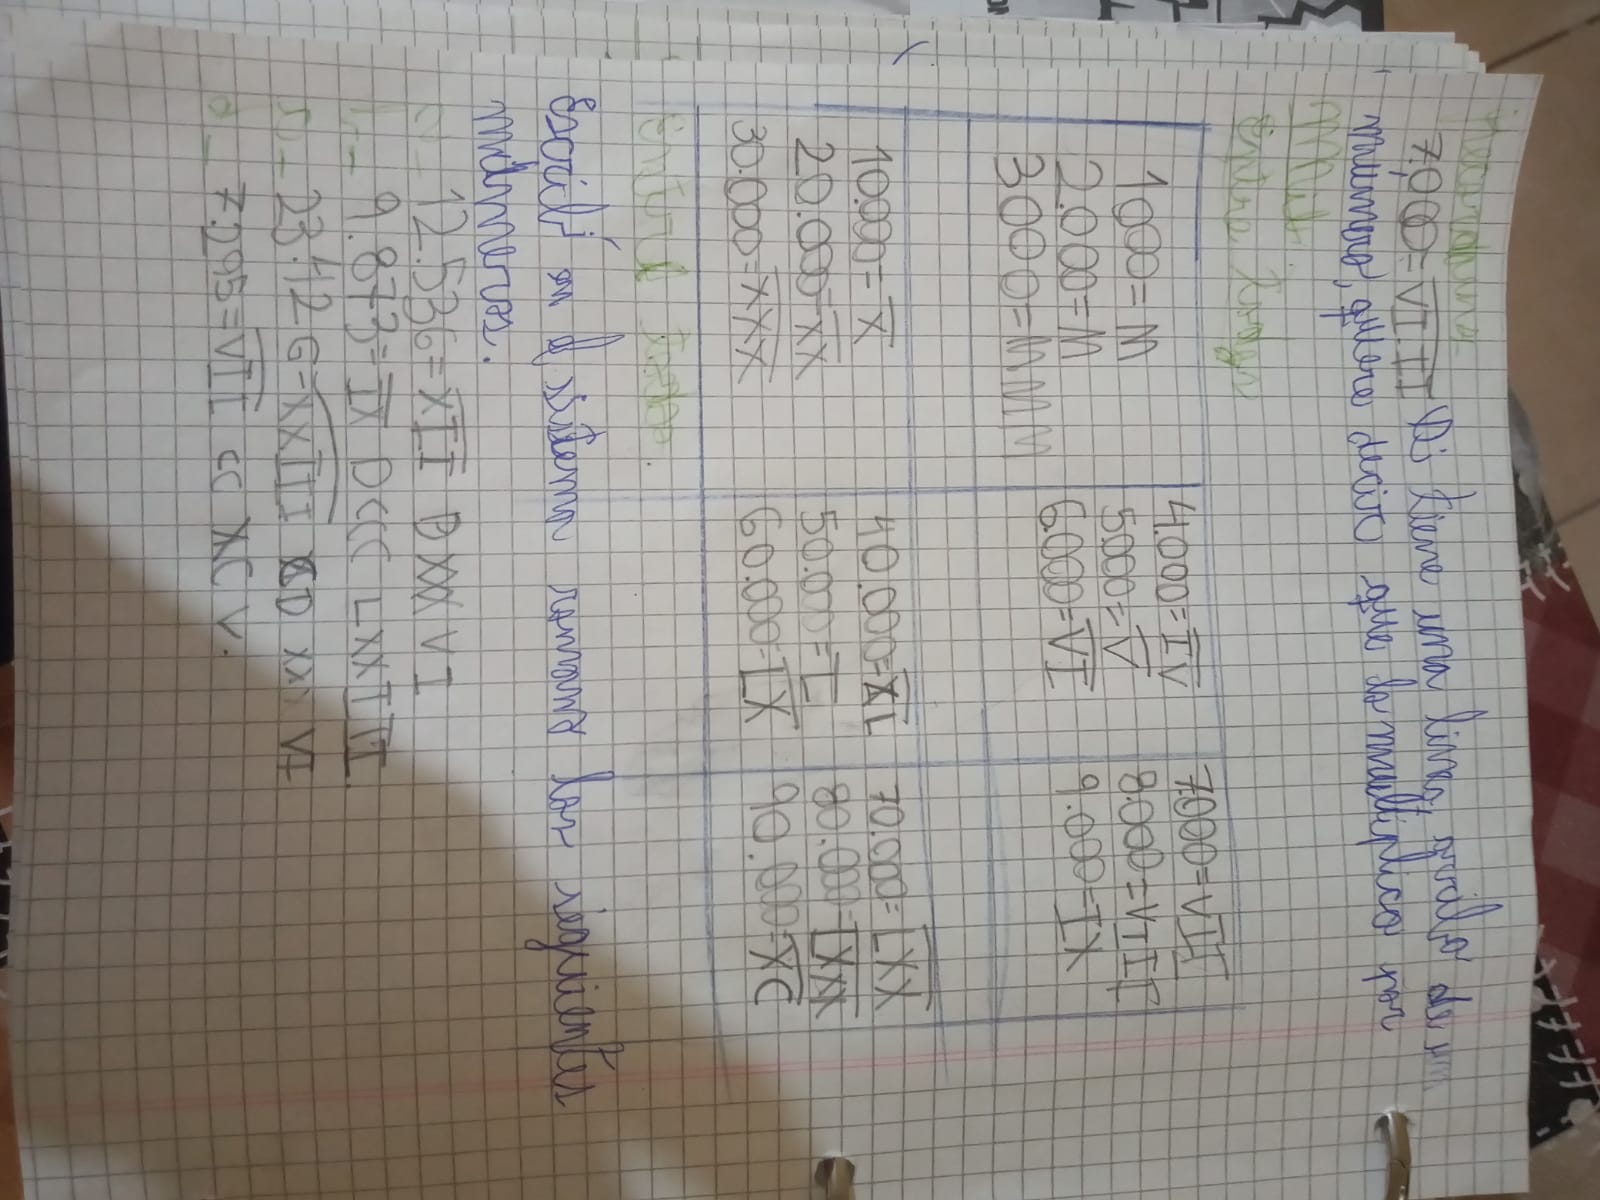 Recordamos
7.000=V̅I̅I̅I̅ Si tiene una linea arriba de un
número, quere decir que lo multiplico por
Mil.
Entre todos
1000=M
2.000=M
3000=MMM
4.000=I̅V̅
5000=V̅
6.000=V̅I̅
7.000=V̅I̅I̅
8.000=VIII
9.000=IX
10.000=X̅
20.000=X̅X̅
30.000=X̅X̅X̅
40.000=X̅L̅
50.000=L
60.000=L̅X̅
70.000=L̅X̅X̅
80.000=L̅X̅X̅X̅
90.000=X̅C̅
Escribí en el sistema romano los siguientes
números.
12.536=X̅I̅I̅ D XXX VI
9.873=I̅X̅ DCCC LXXIII
23.426=X̅X̅I̅I̅I̅ CD XXX VI
d- 7.295=V̅I̅I̅ CC XC V.